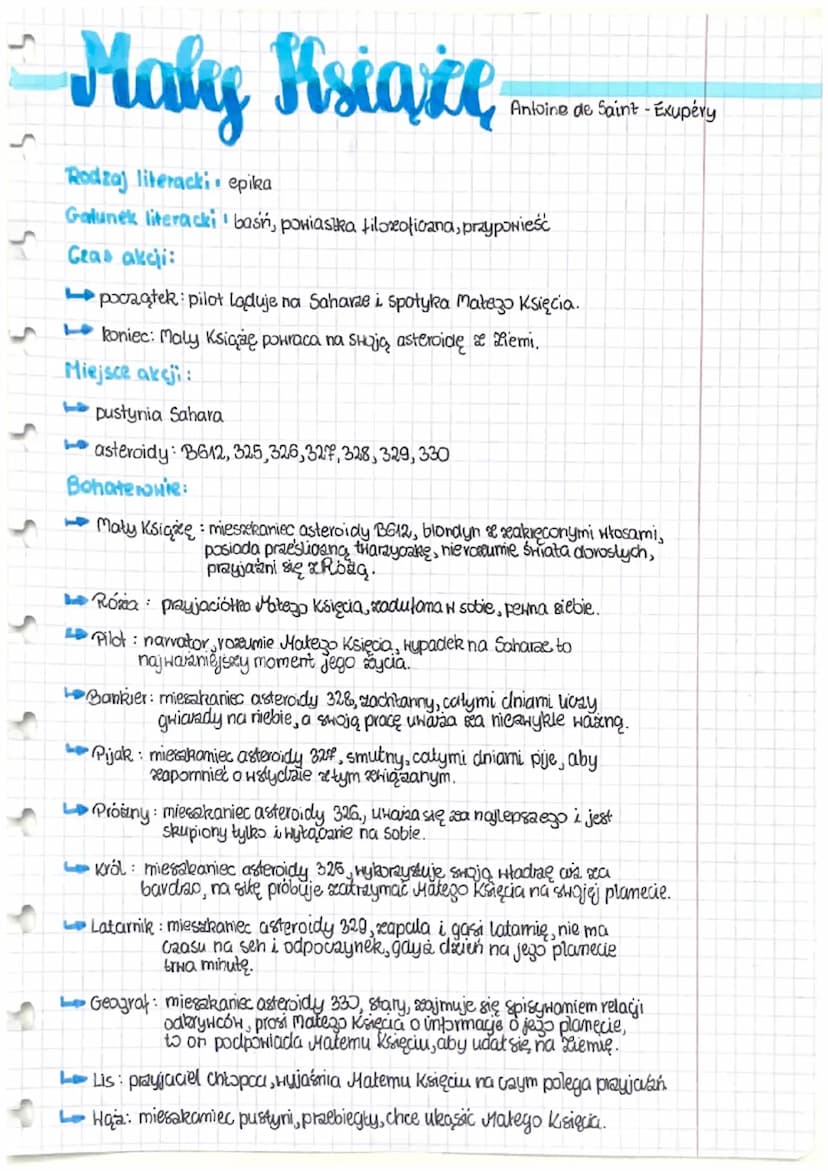 Mały Książę
Antoine de Saint-Exupéry
Rodzaj literacki: epika
Gatunek literacki: baśń, powiastka filozoficzna, przypowieść
Czas akcji:
początek: pilot ląduje na Saharze i spotyka Małego Księcia.
koniec: Mały Książę powraca na swoją asteroidę z Ziemi.
Miejsce akcji:
pustynia Sahara
asteroidy: B612, 325, 326, 327, 328, 329, 330
Bohaterowie:
Mały Książę: mieszkaniec asteroidy B612, blondyn z zakręconymi włosami,
posiada prześliczną twarzyczkę, nie rozumie świata dorosłych,
przyjaźni się z Różą.
Róża: przyjaciółka Małego Księcia, zadufana w sobie, pewna siebie.
Pilot: narrator, rozumie Małego Księcia, wypadek na Saharze to
najważniejszy moment jego życia.
Bankier: mieszkaniec asteroidy 328, zachłanny, całymi dniami liczy
gwiazdy na niebie, a swoją pracę uważa za niezwykle ważną.
Pijak: mieszkaniec asteroidy 327, smutny, całymi dniami pije, aby
zapomnieć o wstydzie z tym związanym.
Próżny: mieszkaniec asteroidy 326, uważa się za najlepszego i jest
skupiony tylko i wyłącznie na sobie.
Król: mieszkaniec asteroidy 325, wykorzystuje swoją władzę aż za
bardzo, na siłę próbuje zatrzymać Małego Księcia na swojej planecie.
Latarnik: mieszkaniec asteroidy 329, zapala i gasi latarnię, nie ma
czasu na sen i odpoczynek, gdyż dzień na jego planecie
trwa minutę.
Geograf: mieszkaniec asteroidy 330, stary, zajmuje się spisywaniem relacji
odkrywców, prosi Małego Księcia o informacje o jego planecie,
to on podpowiada Małemu Księciu, aby udał się na Ziemię.
Lis: przyjaciel chłopca, wyjaśnia Małemu Księciu na czym polega przyjaźń
Wąż: mieszkaniec pustyni, przebiegły, chce ukąsić Małego Księcia.